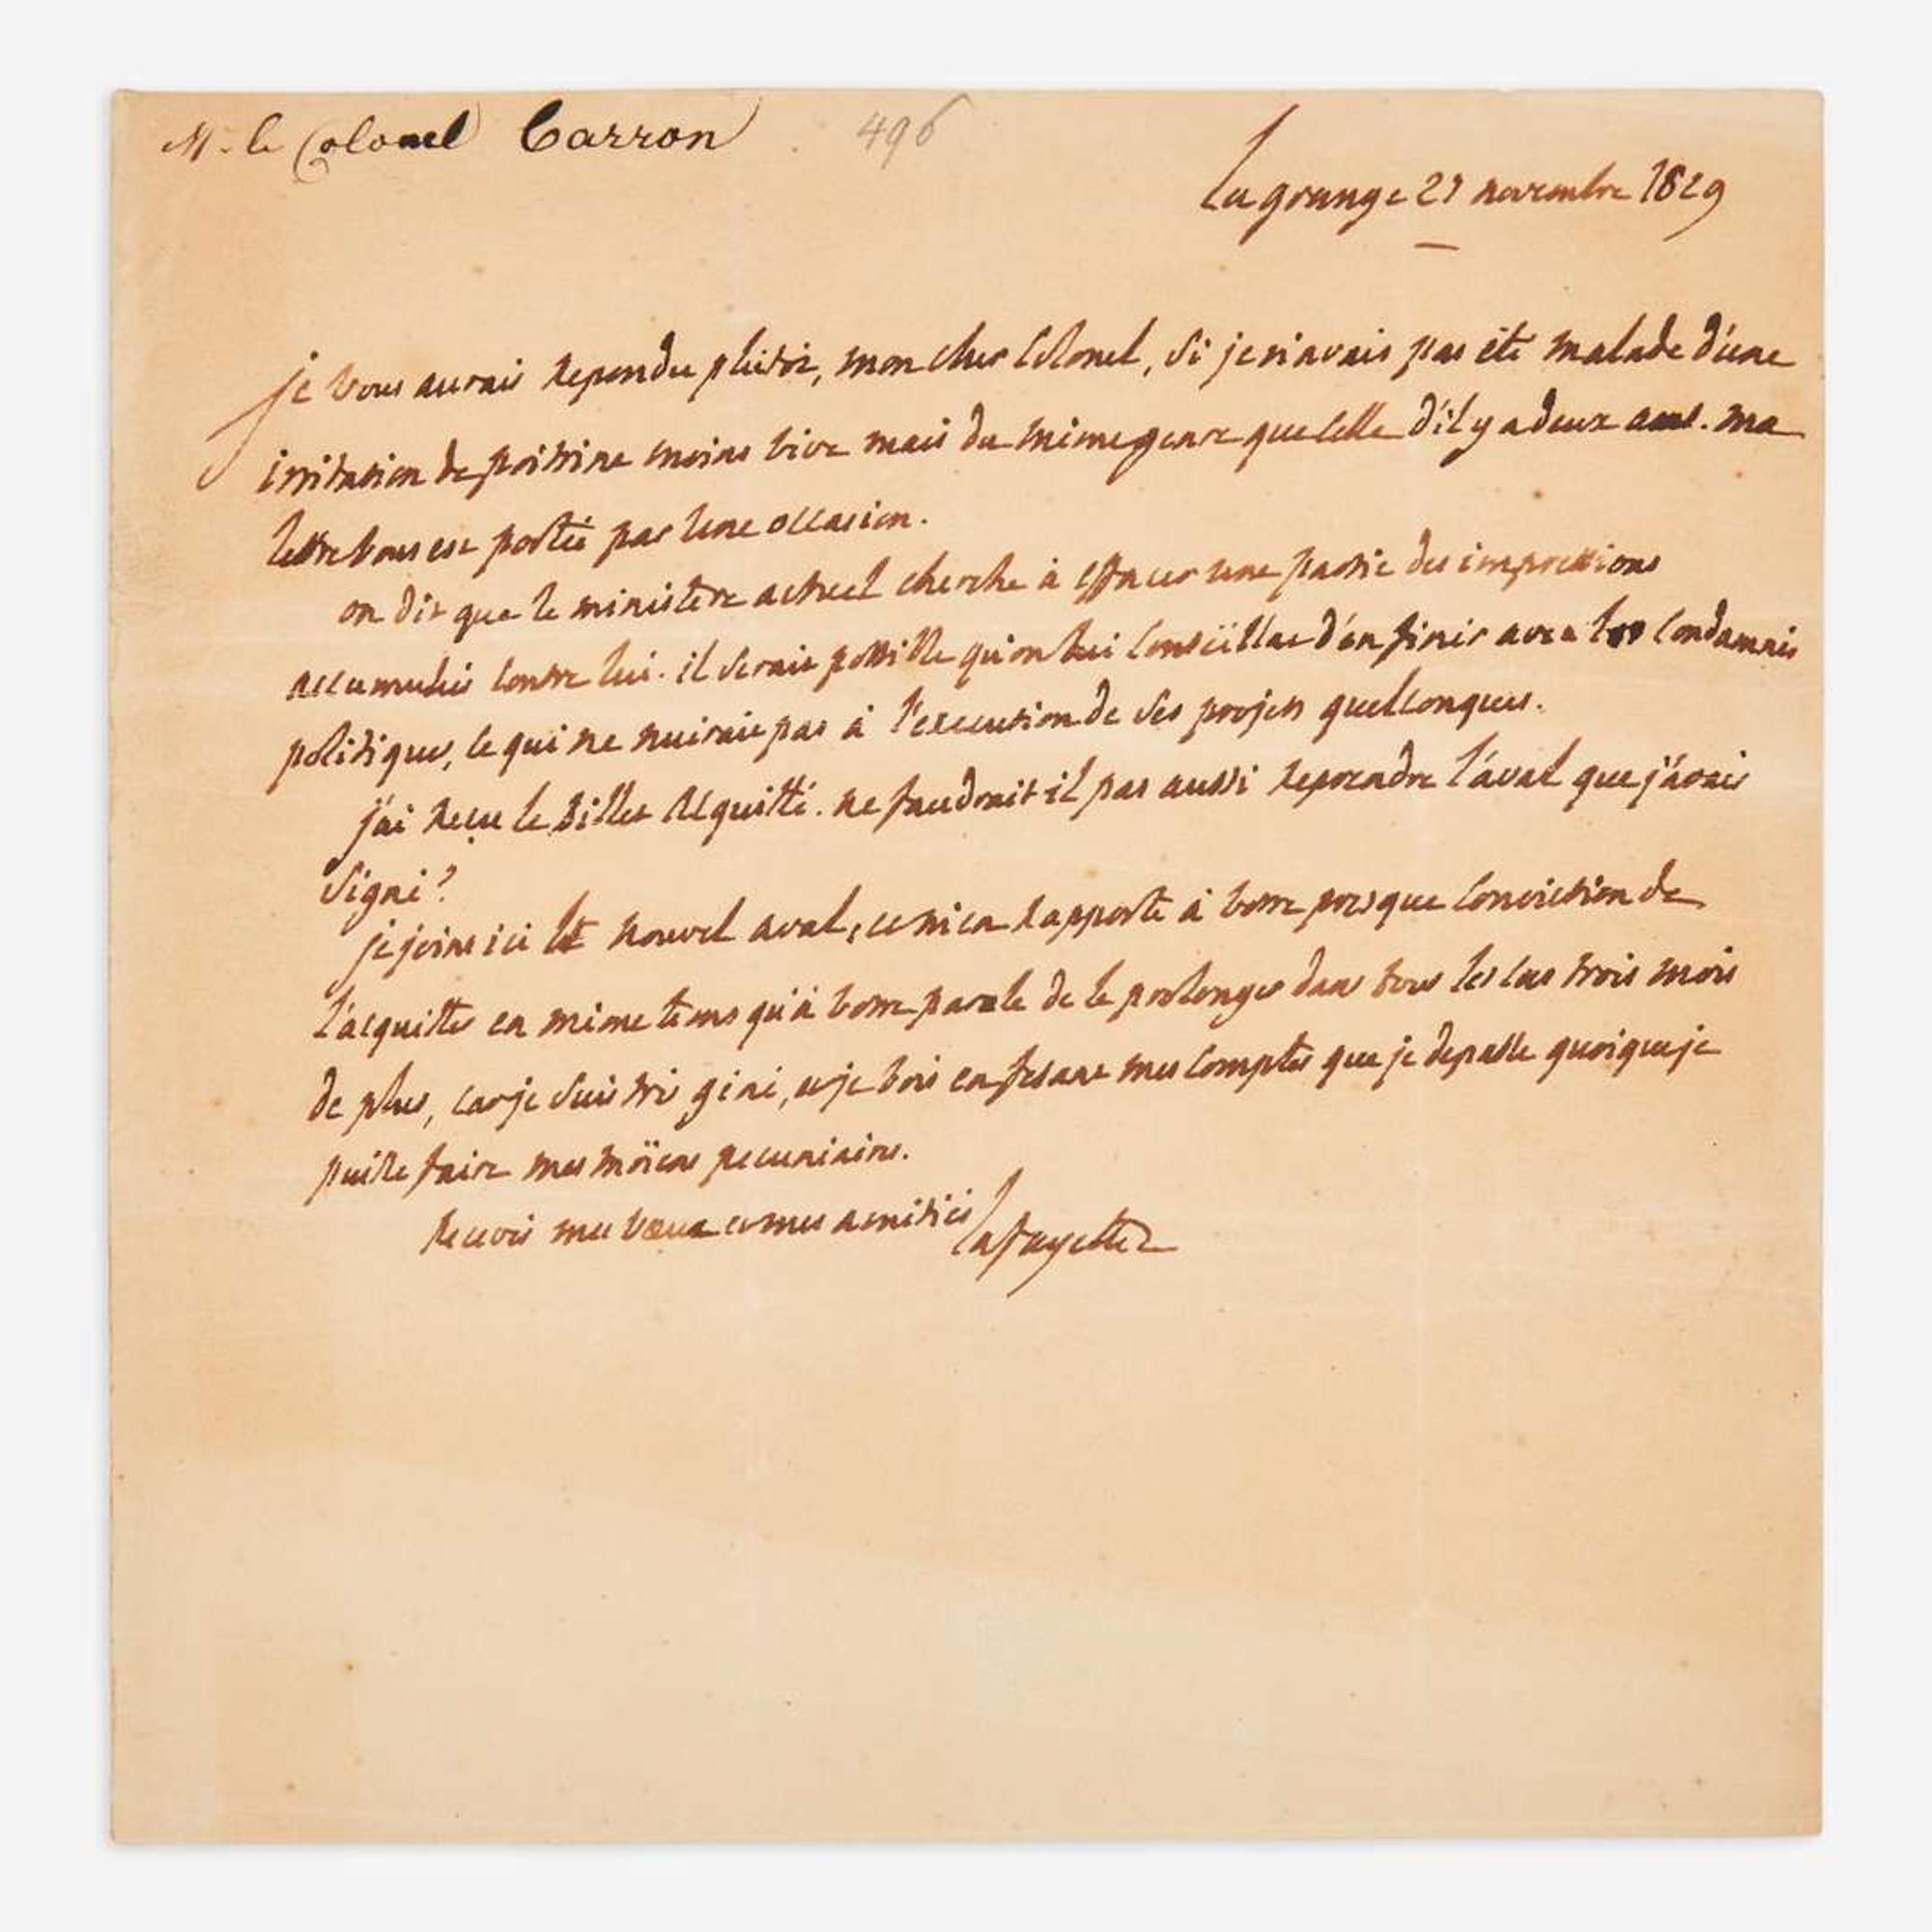 Mr. le Colonel Carron
496
Lagrange 27 novembre 1829
je vous aurais repondu plutot, mon cher Colonel, si je n'avais pas été malade d'une
irritation de poitrine moins vive mais du même genre que celle d'il y a deux ans. ma
lettre vous est portée par une occasion.
on dit que le ministère actuel cherche à effacer une partie des impressions
accumulées contre lui. il serait possible qu'on lui conseillat d'en finir avec les condamnés
politiques, ce qui ne nuirait pas à l'execution de ses projets quelconques.
j'ai reçu le billet acquitté. ne faudrait-il pas aussi reprendre l'aval que j'avais
signé?
je joins ici le nouvel aval, et m'en rapporte à votre presque conviction de
l'acquitter en même tems qu'à votre parole de le prolonger dans tous les cas trois mois
de plus, car je suis très gèné, et je vois en fesant mes comptes que je depasse quoique je
puisse faire mes moïens pecuniaires.
recevés mes vœux et mes amitiés
Lafayette